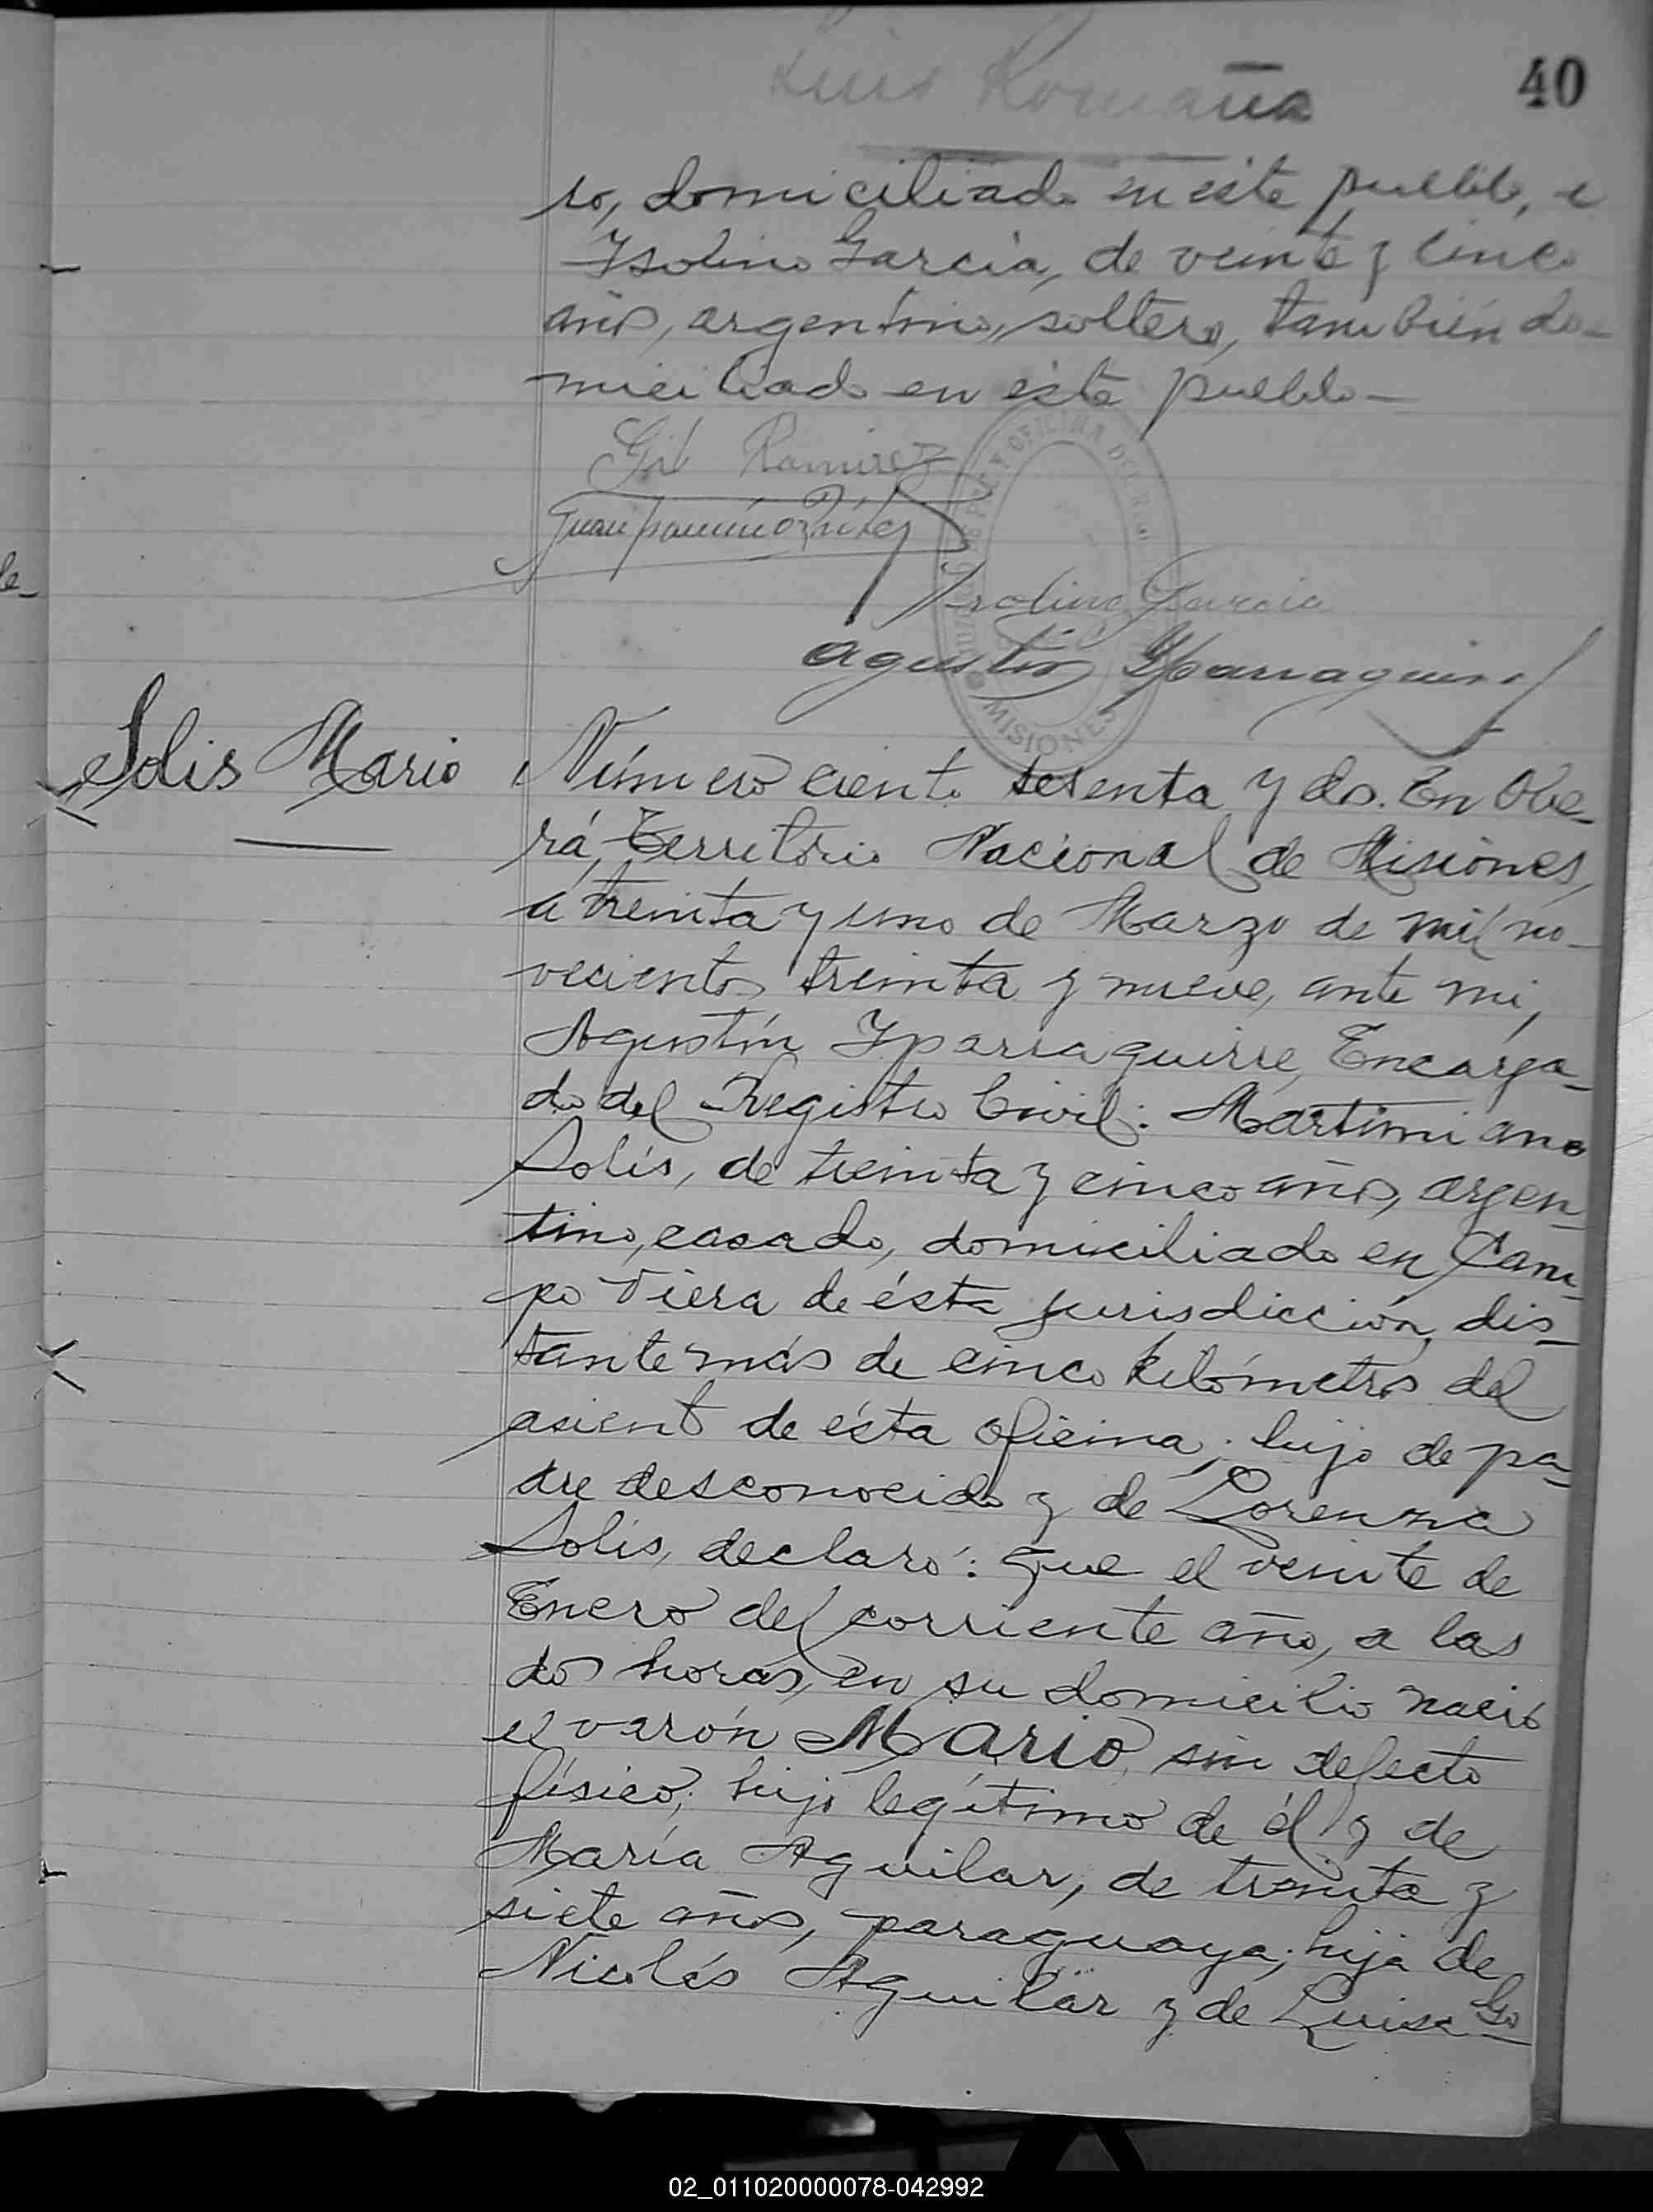 40
Luis Romaña
ro, domiciliado en este pueblo, e
Isolino García, de veinte y cinco
años, argentino, soltero, también do-
miciliado en este pueblo—
Gil Ramirez
Juan
Isolino Garcia
Agustin Yparraguirre
OFICINA DEL
MISIONES
Solis Mario
Número ciento setenta y dos. En Obe-
rá, Territorio Nacional de Misiones,
a treinta y uno de Marzo de mil no-
vecientos treinta y nueve, ante mi,
Agustín Yparraguirre, Encarga-
do del Registro Civil: Martimiano
Solís, de treinta y cinco años, argen-
tino, casado, domiciliado en Cam-
po Viera de ésta jurisdicción, dis-
tante más de cinco kilómetros del
asiento de ésta oficina; hijo de pa-
dre desconocido y de Lorenza
Solís, declaró: que el veinte de
Enero del corriente año, a las
dos horas, en su domicilio nació
el varón Mario, sin defecto
físico; hijo legítimo de él y de
María Aguilar, de treinta y
siete años, paraguaya; hija de
Nicolás Aguilar y de Luisa Go-
02_011020000078-042992